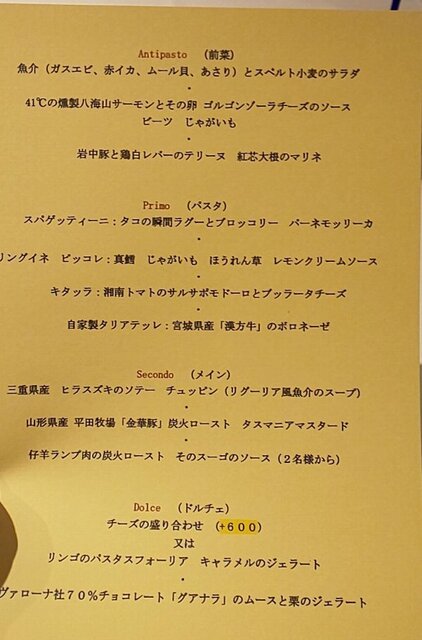 Antipasto （前菜）
魚介（ガスエビ、赤イカ、ムール貝、あさり）とスペルト小麦のサラダ
・
41℃の燻製八海山サーモンとその卵 ゴルゴンゾーラチーズのソース
ビーツ　じゃがいも
・
岩中豚と鶏白レバーのテリーヌ　紅芯大根のマリネ
Primo （パスタ）
スパゲッティーニ：タコの瞬間ラグーとブロッコリー　パーネモッリーカ
・
リングイネ　ピッコレ：真鱈　じゃがいも　ほうれん草　レモンクリームソース
・
キタッラ：湘南トマトのサルサポモドーロとブッラータチーズ
・
自家製タリアテッレ：宮城県産「漢方牛」のボロネーゼ
Secondo （メイン）
三重県産　ヒラスズキのソテー　チュッピン（リグーリア風魚介のスープ）
・
山形県産 平田牧場「金華豚」炭火ロースト　タスマニアマスタード
・
仔羊ランプ肉の炭火ロースト　そのスーゴのソース（２名様から）
Dolce （ドルチェ）
チーズの盛り合わせ　（+６００）
又は
リンゴのパスタスフォーリア　キャラメルのジェラート
・
ヴァローナ社７０％チョコレート「グアナラ」のムースと栗のジェラート